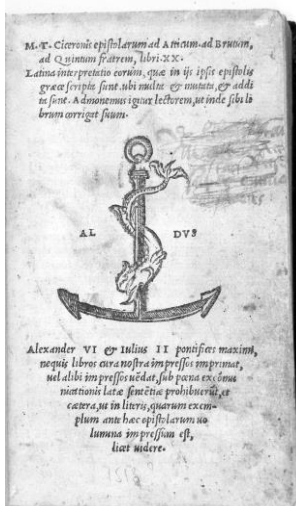 M. T. Ciceronis epistolarum ad Atticum. ad Brutum,
ad Quintum fratrem, libri. XX.
Latina interpretatio eorum, quæ in ijs ipsis epistolis
græce scripta sunt. ubi multa & mutata, & addi
ta sunt. Admonemus igitur lectorem, ut inde sibi li
brum corrigat suum.
AL DVS
Alexander VI & Iulius II pontifices maximi,
nequis libros cura nostra impressos imprimat,
uel alibi impressos uẽdat, sub pœna excõmu
nicationis latæ sentẽtiæ prohibuerũt, et
cætera, ut in literis, quarum exem-
plum ante hæc epistolarum uo
lumina impressum est,
licet uidere.